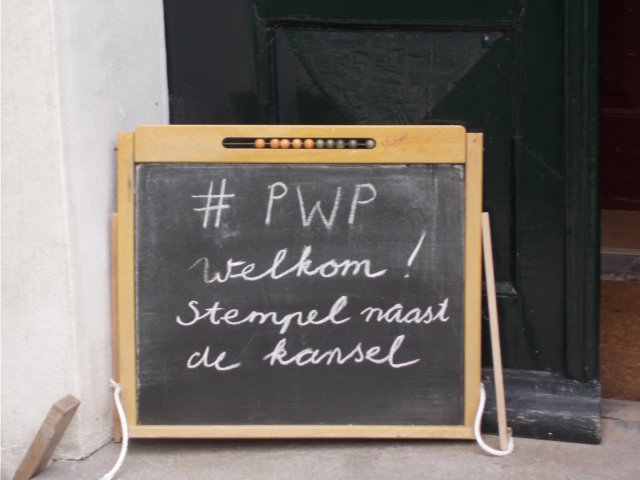 # PWP
Welkom!
Stempel naast
de kansel